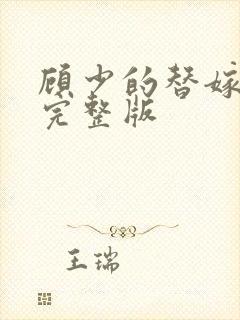 顾少的替嫁
完整版
王瑞